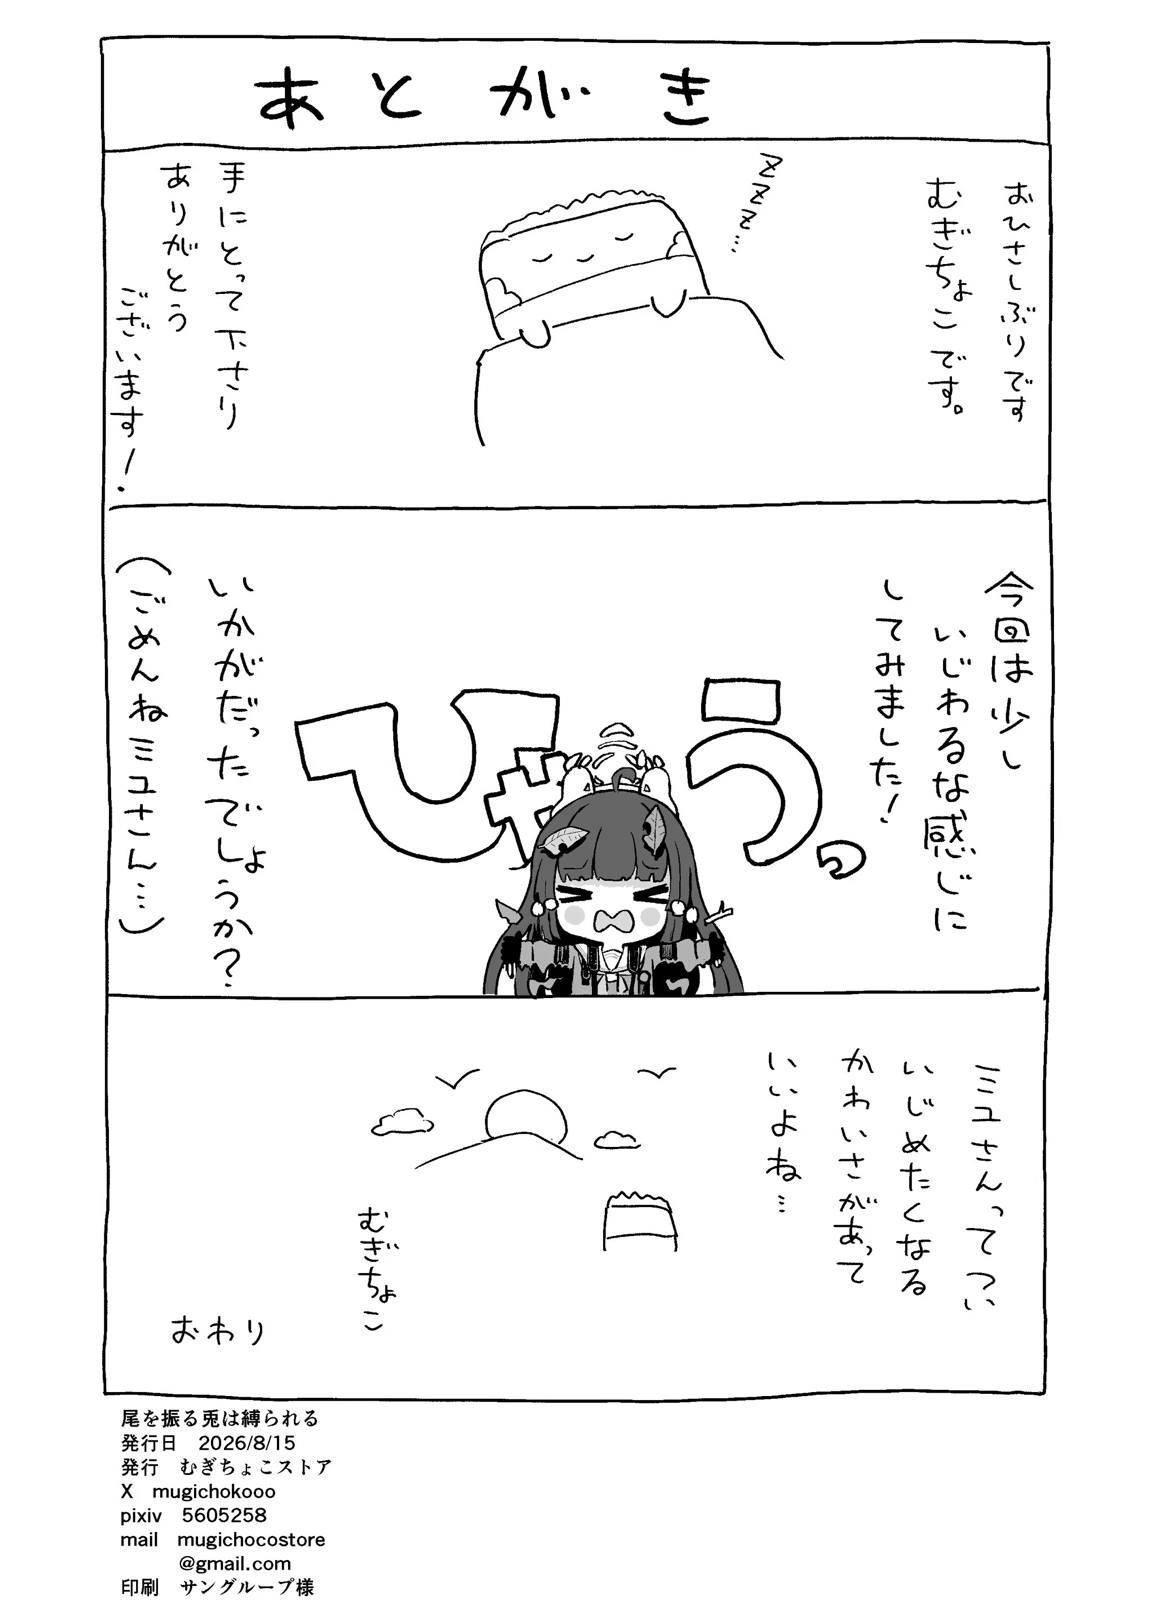 あとがき
おひさしぶりです
むぎちょこです。
zzz…
手にとって下さり
ありがとう
ございます!
今回は少し
いじわるな感じに
してみました!
ひゃうっ
いかがだったでしょうか?
(ごめんねミユさん…)
ミユさんってつい
いじめたくなる
かわいさがあって
いいよね…
むぎちょこ
おわり
尾を振る兎は縛られる
発行日 2026/8/15
発行 むぎちょこストア
X mugichokooo
pixiv 5605258
mail mugichocostore
@gmail.com
印刷 サングループ様